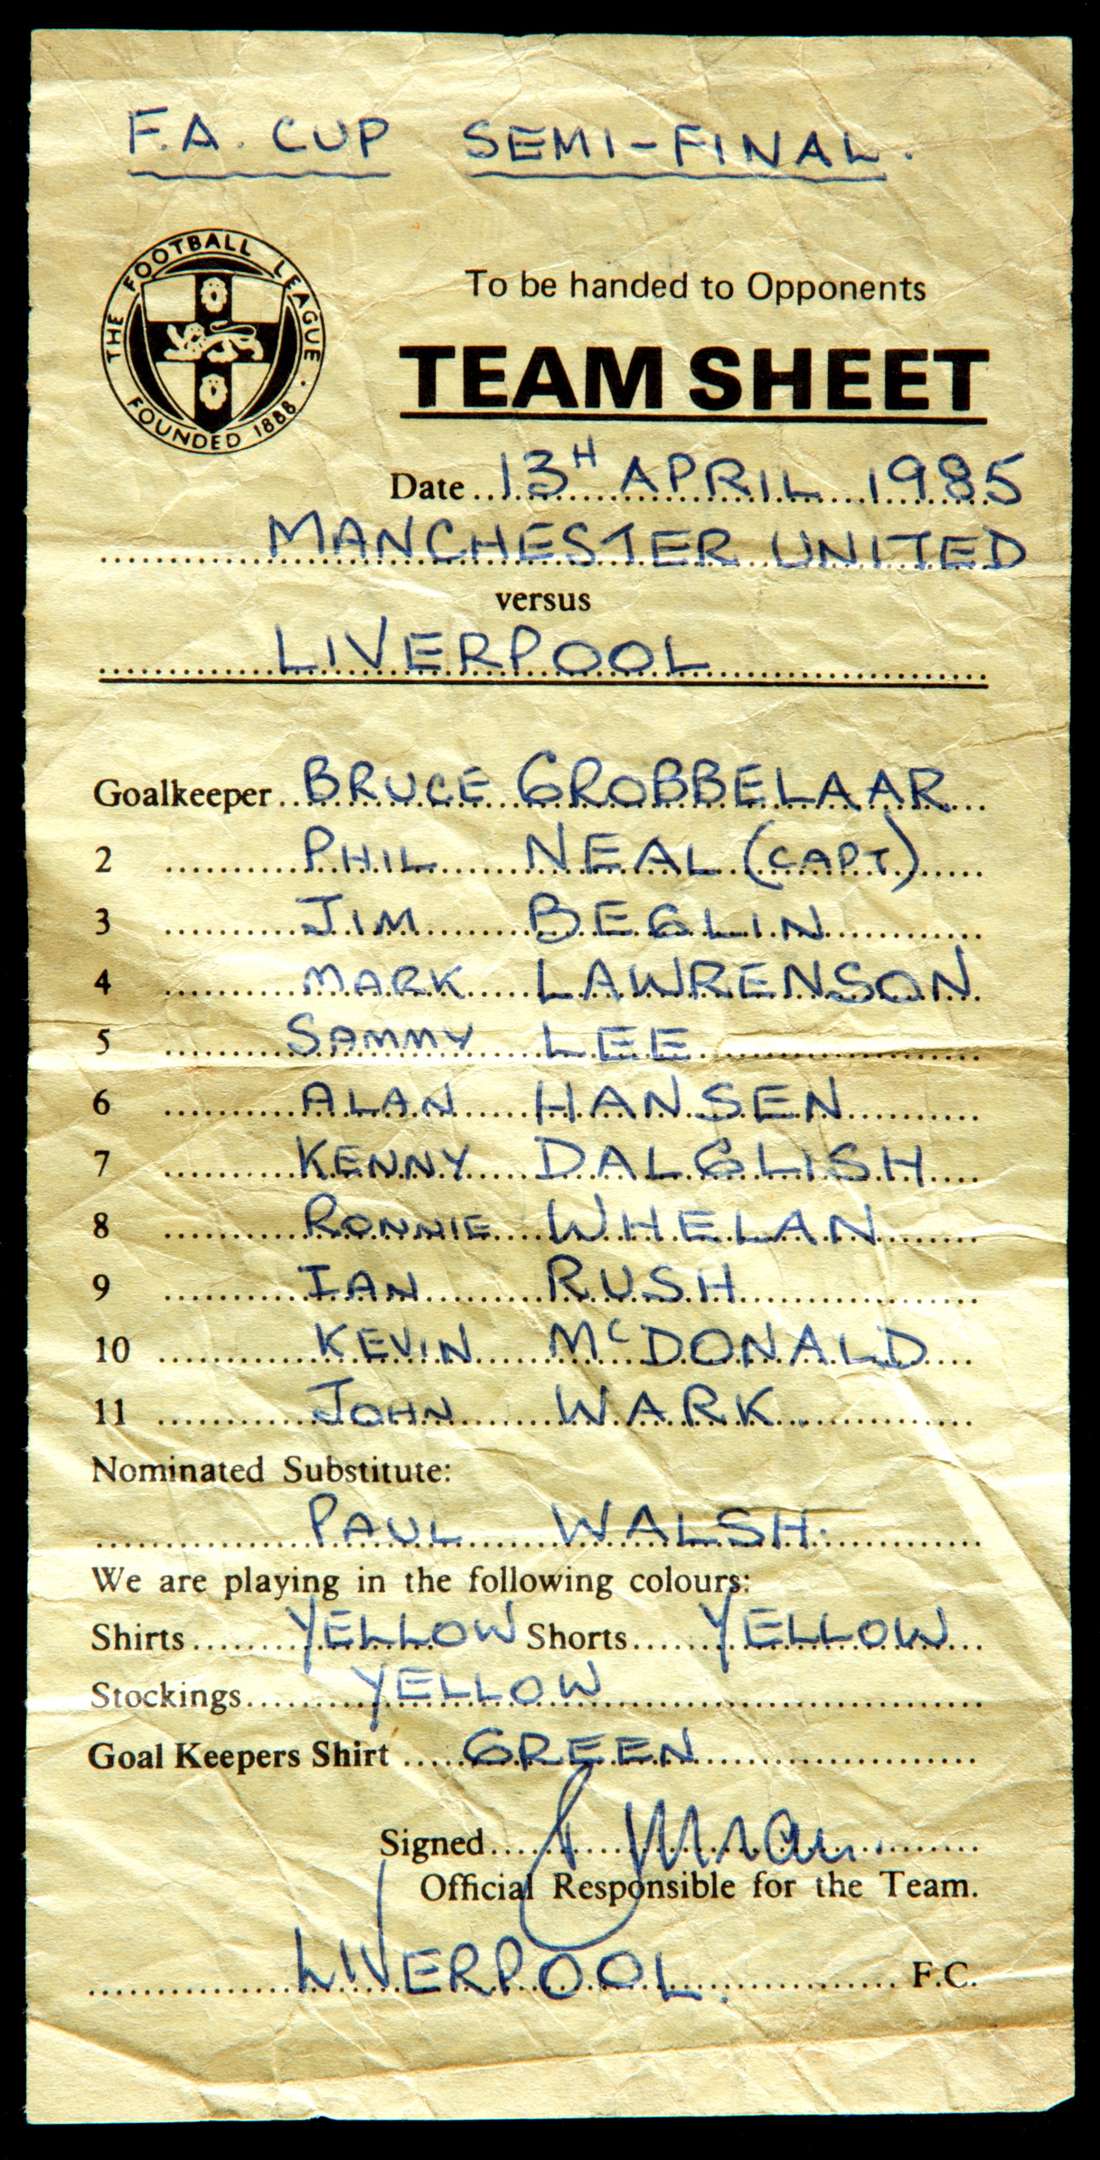 F.A. CUP SEMI-FINAL.
THE FOOTBALL LEAGUE · FOUNDED 1888
To be handed to Opponents
TEAM SHEET
Date 13TH APRIL 1985
MANCHESTER UNITED
versus
LIVERPOOL
Goalkeeper BRUCE GROBBELAAR
2 PHIL NEAL (CAPT)
3 JIM BEGLIN
4 MARK LAWRENSON
5 SAMMY LEE
6 ALAN HANSEN
7 KENNY DALGLISH
8 RONNIE WHELAN
9 IAN RUSH
10 KEVIN McDONALD
11 JOHN WARK
Nominated Substitute:
PAUL WALSH.
We are playing in the following colours:
Shirts YELLOW Shorts YELLOW
Stockings YELLOW
Goal Keepers Shirt GREEN
Signed
Official Responsible for the Team.
LIVERPOOL. F.C.